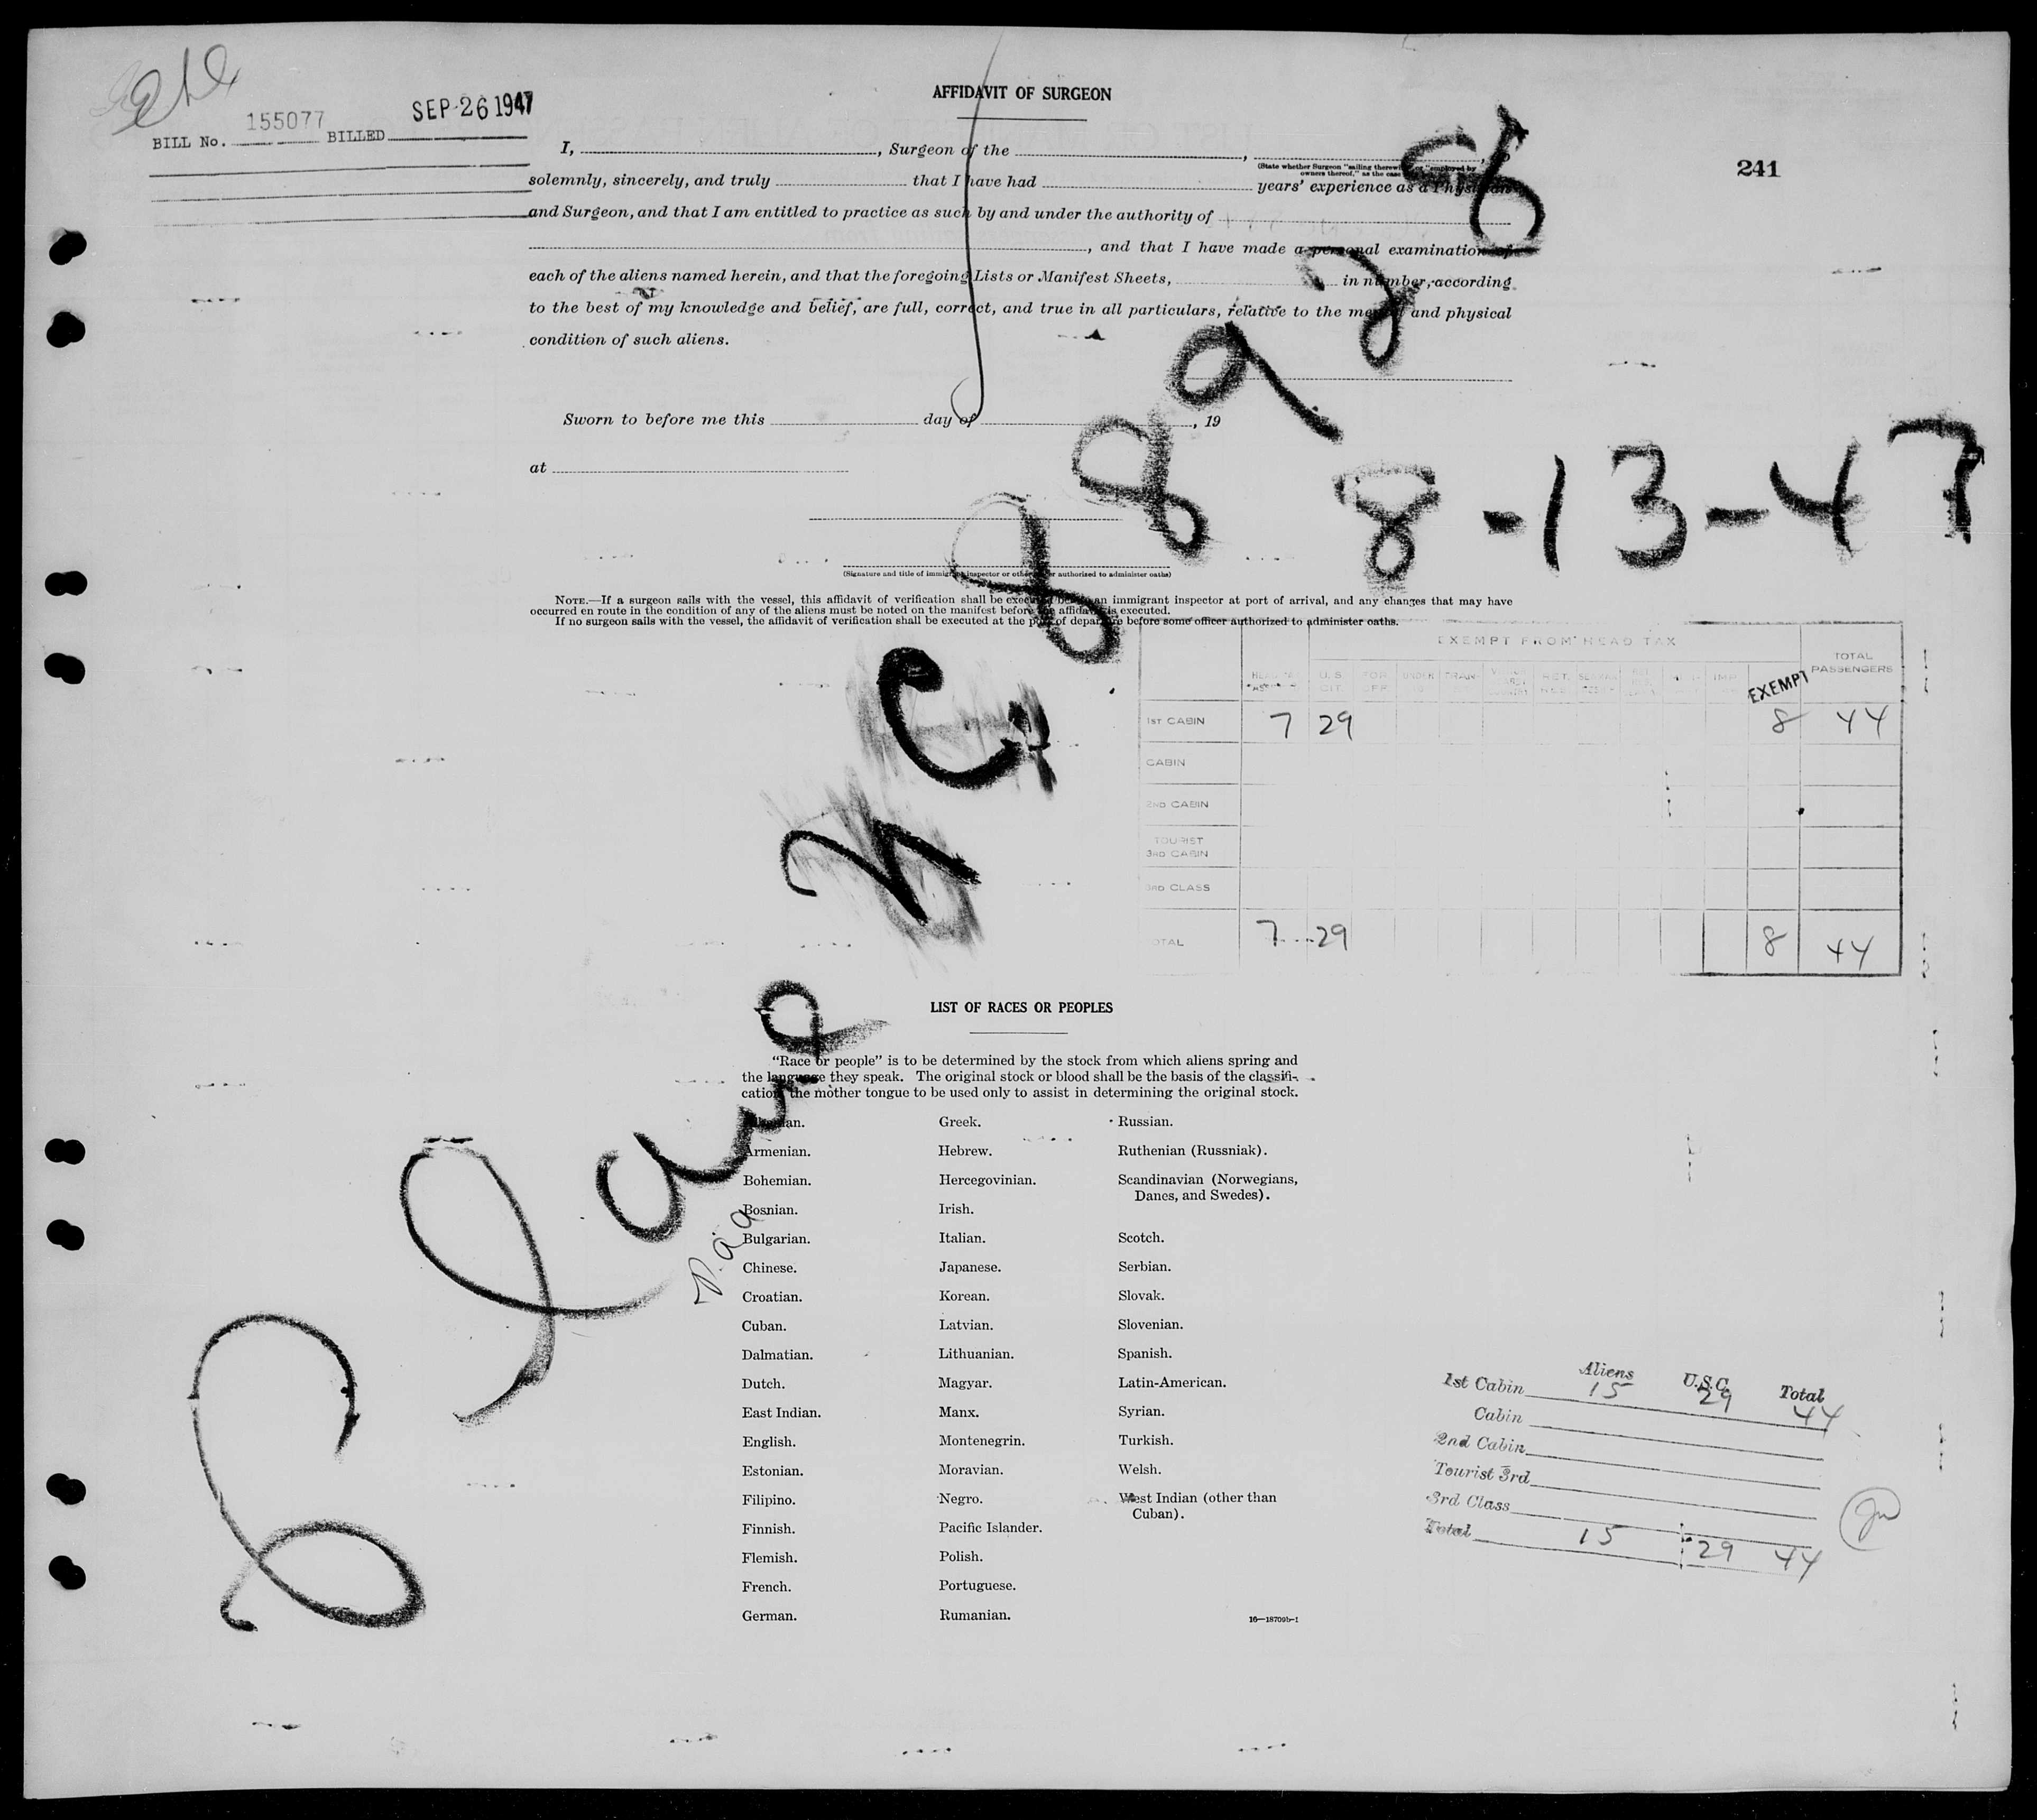 AFFIDAVIT OF SURGEON
BILL No. 155077 BILLED SEP 26 1947
241
I, , Surgeon of the , ,
(State whether Surgeon "sailing therewith" "employed by
owners thereof," as the case
solemnly, sincerely, and truly that I have had years' experience as a Physician
and Surgeon, and that I am entitled to practice as such by and under the authority of
, and that I have made a personal examination of
each of the aliens named herein, and that the foregoing Lists or Manifest Sheets, in number, according
to the best of my knowledge and belief, are full, correct, and true in all particulars, relative to the mental and physical
condition of such aliens.
Sworn to before me this day of , 19
at
(Signature and title of immigrant inspector or other officer authorized to administer oaths)
NOTE.—If a surgeon sails with the vessel, this affidavit of verification shall be executed before an immigrant inspector at port of arrival, and any changes that may have
occurred en route in the condition of any of the aliens must be noted on the manifest before the affidavit is executed.
If no surgeon sails with the vessel, the affidavit of verification shall be executed at the port of departure before some officer authorized to administer oaths.
Plane NC 88928
8-13-47
EXEMPT FROM HEAD TAX
TOTAL PASSENGERS
U.S. CIT. UNDER TRAN. EXEMPT
1ST CABIN 7 29 8 44
CABIN
2ND CABIN
TOURIST
3RD CABIN
3RD CLASS
TOTAL 7 29 8 44
LIST OF RACES OR PEOPLES
"Race or people" is to be determined by the stock from which aliens spring and
the language they speak. The original stock or blood shall be the basis of the classifi-
cation, the mother tongue to be used only to assist in determining the original stock.
Albanian. Greek. Russian.
Armenian. Hebrew. Ruthenian (Russniak).
Bohemian. Hercegovinian. Scandinavian (Norwegians,
Danes, and Swedes).
Bosnian. Irish.
Bulgarian. Italian. Scotch.
Chinese. Japanese. Serbian.
Croatian. Korean. Slovak.
Cuban. Latvian. Slovenian.
Dalmatian. Lithuanian. Spanish.
Dutch. Magyar. Latin-American.
East Indian. Manx. Syrian.
English. Montenegrin. Turkish.
Estonian. Moravian. Welsh.
Filipino. Negro. West Indian (other than
Cuban).
Finnish. Pacific Islander.
Flemish. Polish.
French. Portuguese.
German. Rumanian.
16—18709b-1
P.a.a
Aliens U.S.C. Total
1st Cabin 15 29 44
Cabin
2nd Cabin
Tourist 3rd
3rd Class
Total 15 29 44